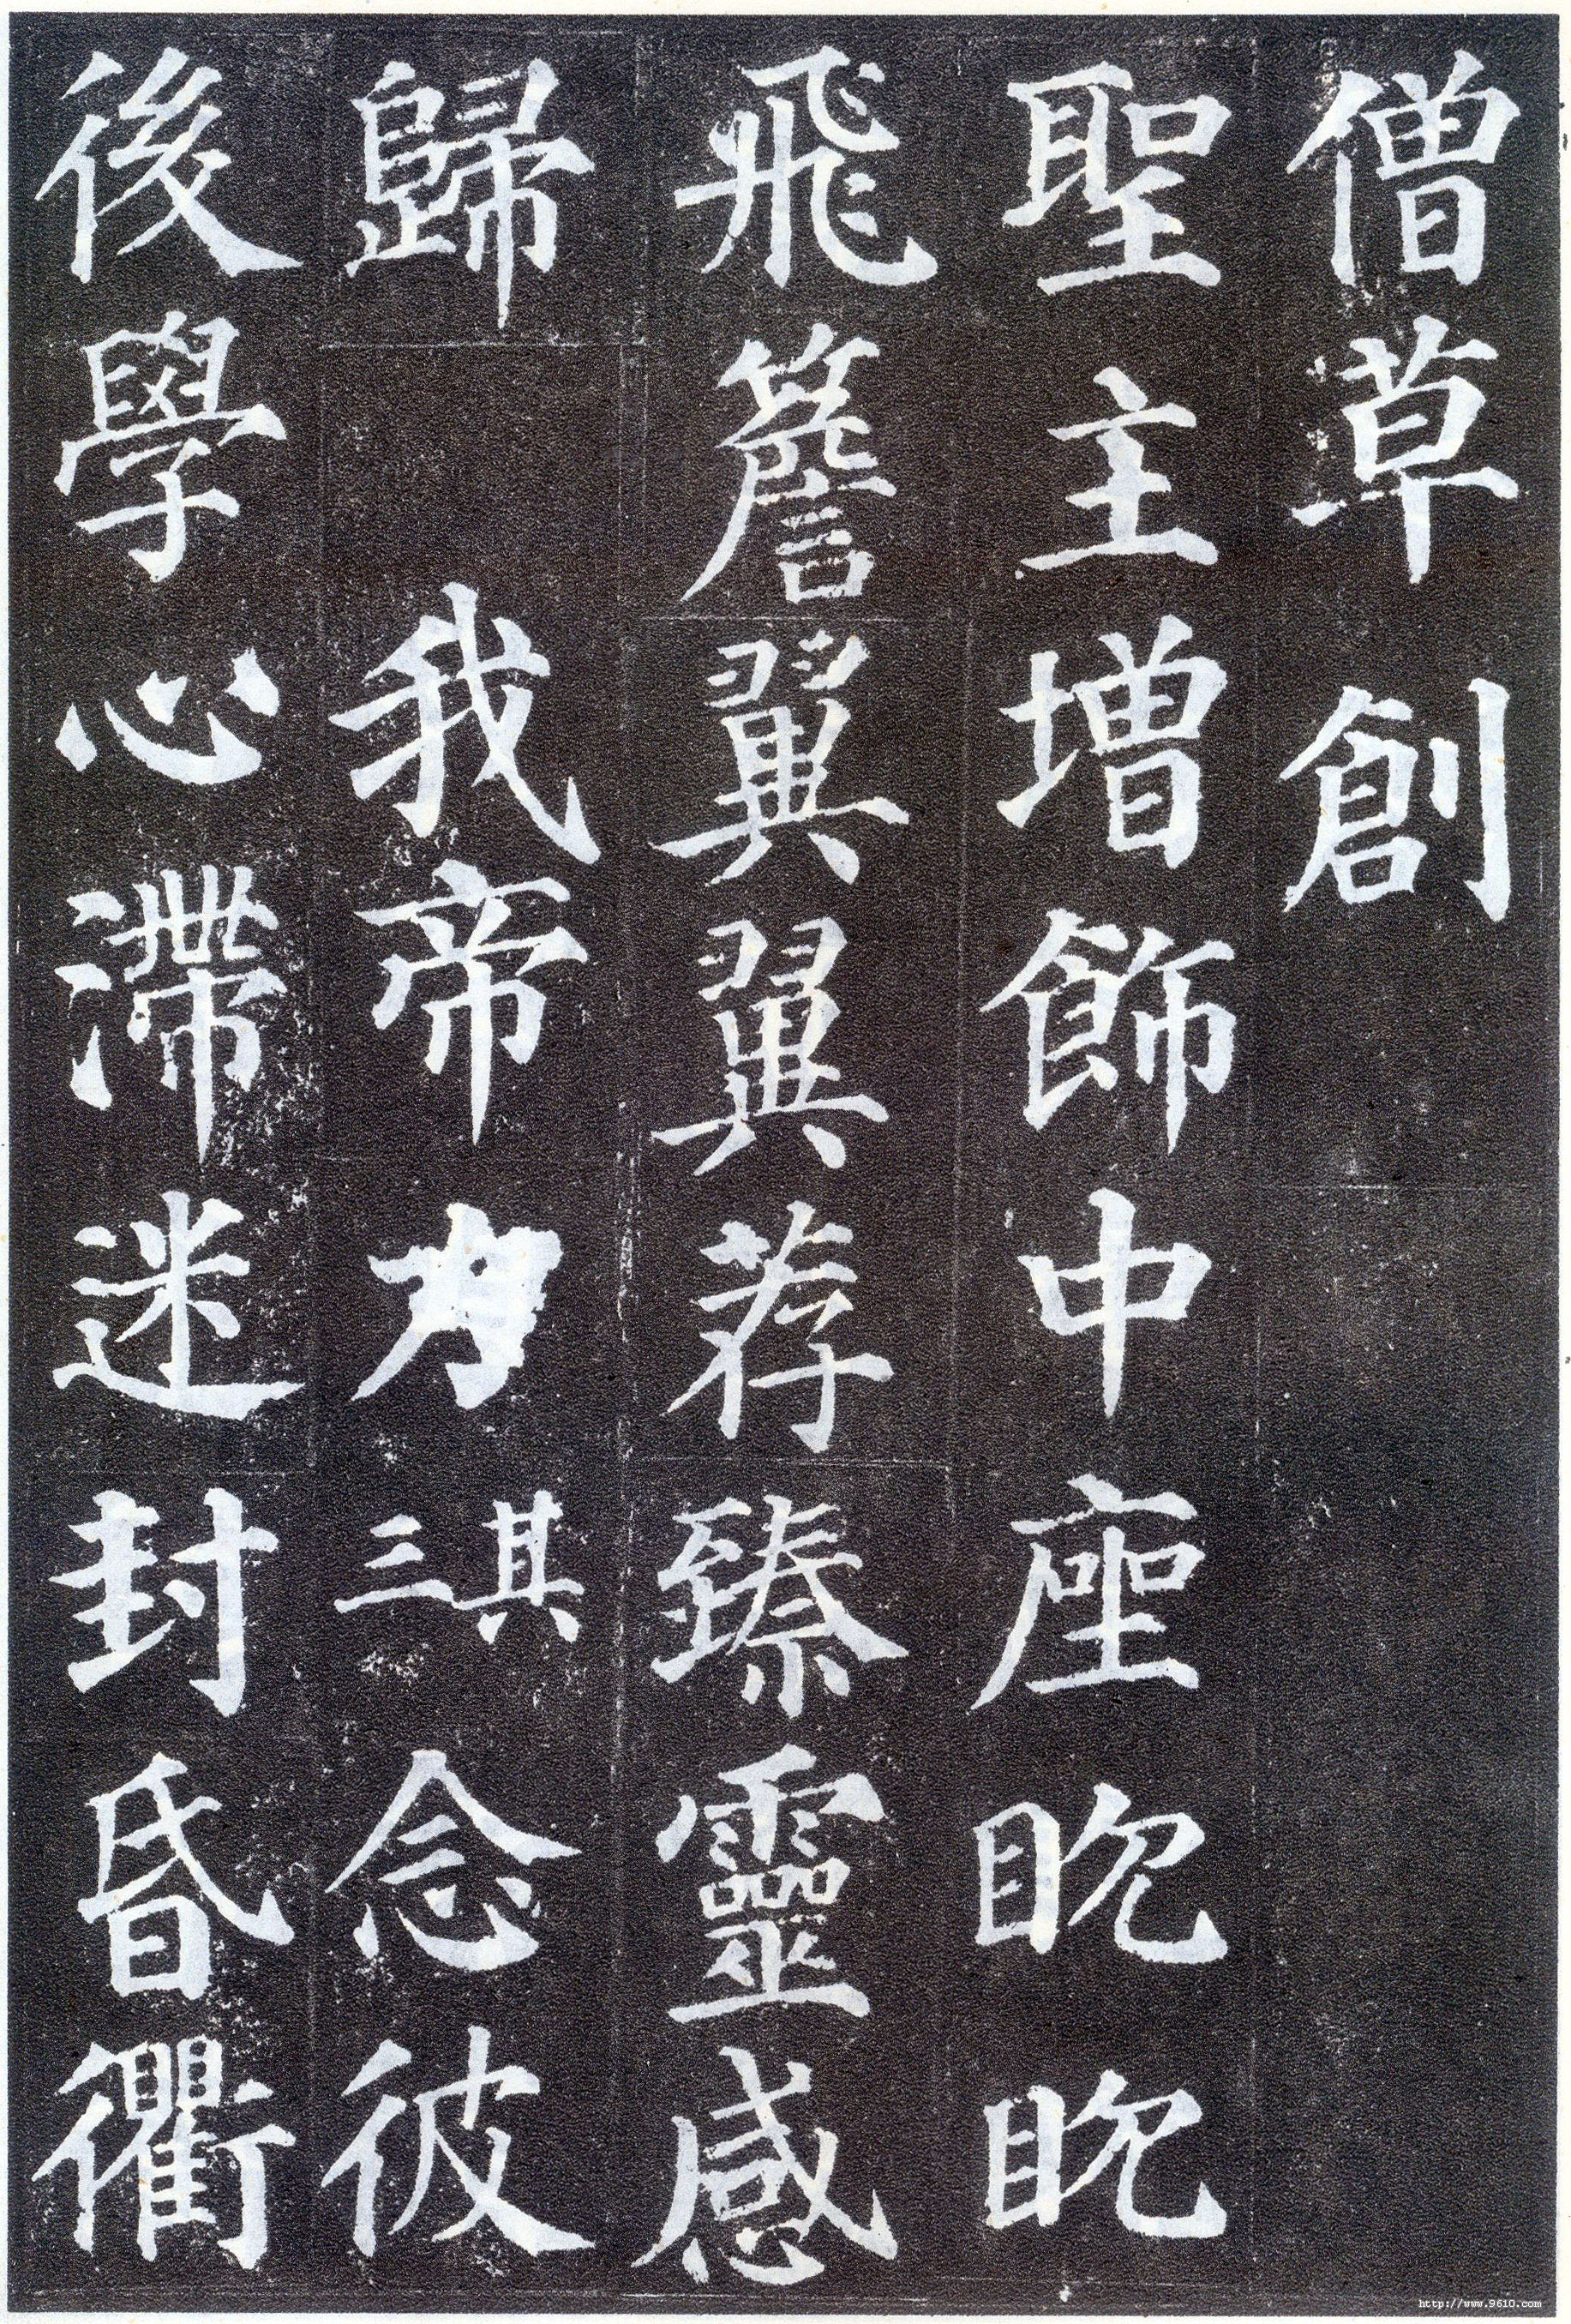 僧草創
聖主增飾中座眈眈
飛簷翼翼荐臻靈感
歸我帝力其三念彼
後學心滯迷封昏衢
http://www.9610.com